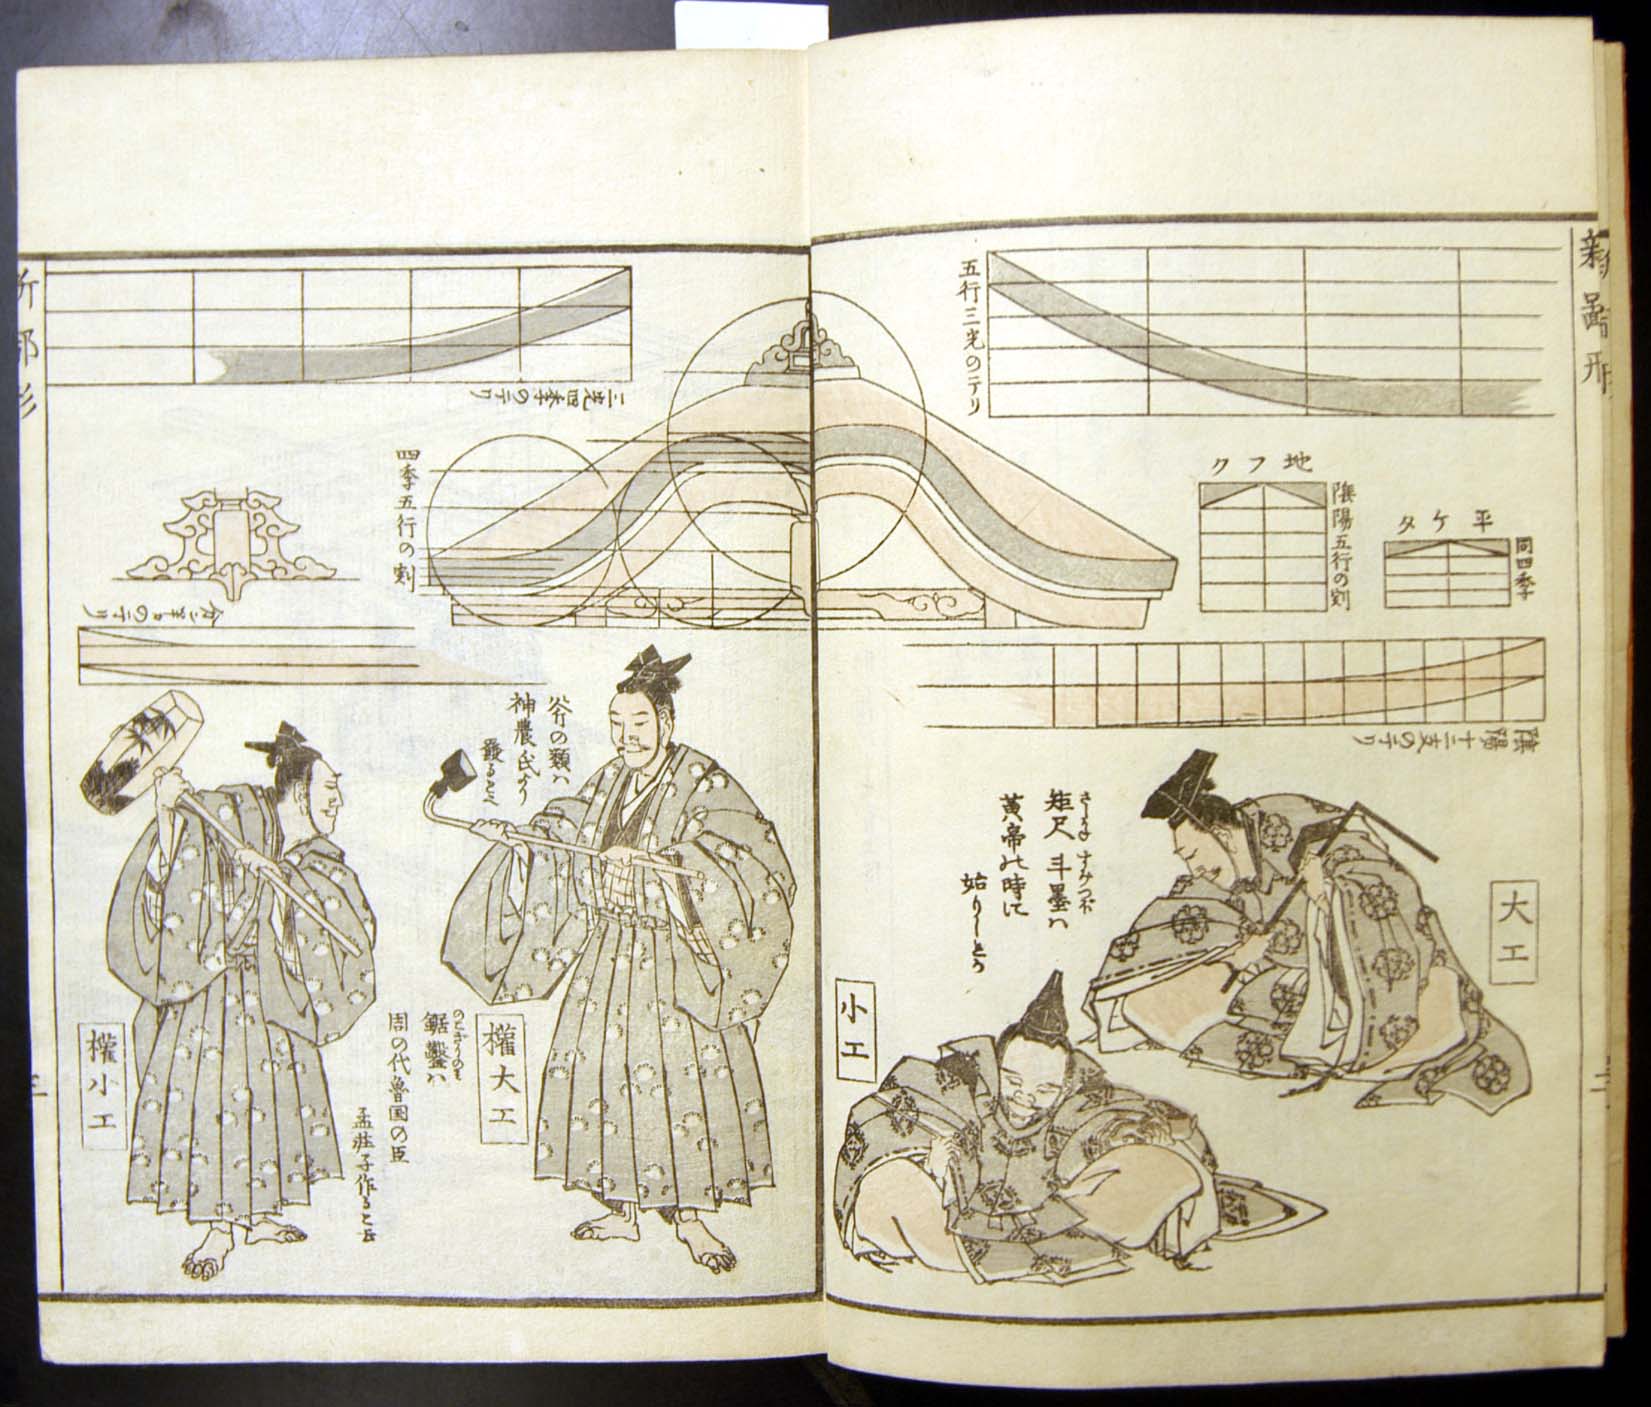 新鄙形
五行三光のテリ
地フク
陰陽五行の割
平ケタ
同四季
陰陽十二支のテリ
大工
さしがね すみつぼ
矩尺 斗墨ハ
黄帝の時に
始りしとう
小工
三光四季のテリ
四季五行の割
斧の類ハ
神農氏より
發ること
權大工
のこぎりのミ
鋸鑿ハ
周の代魯国の臣
孟荘子作ると云
權小工